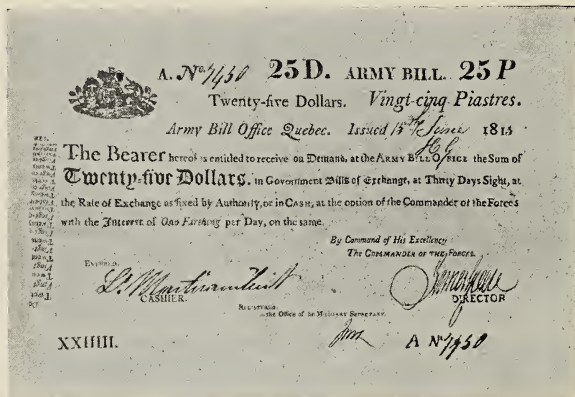 A. No. 7450 25D. ARMY BILL. 25P
Twenty-five Dollars. Vingt-cinq Piastres.
Army Bill Office Quebec. Issued 15th June 181
The Bearer hereof is entitled to receive on Demand, at the ARMY BILL OFFICE the Sum of
Twenty-five Dollars, in Government Bills of Exchange, at Thirty Days Sight, at
the Rate of Exchange as fixed by Authority, or in Cash, at the option of the Commander of the Forces
with the Interest of One Farthing per Day, on the same.
By Command of His Excellency
The COMMANDER OF THE FORCES.
ENTERED.
CASHIER.
DIRECTOR
REGISTERED
the Office of the Military Secretary.
XXIIIII.
A No 7450